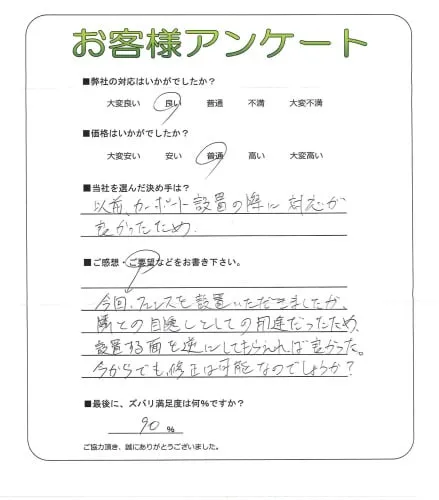 お客様アンケート
■弊社の対応はいかがでしたか？
大変良い 良い 普通 不満 大変不満
■価格はいかがでしたか？
大変安い 安い 普通 高い 大変高い
■当社を選んだ決め手は？
以前、カーポート設置の際に対応が
良かったため.
■ご感想・ご要望などをお書き下さい。
今回、フェンスを設置いただきましたが、
隣との目隠しとしての用途だったため、
設置する面を逆にしてもらえれば良かった。
今からでも、修正は可能なのでしょうか？
■最後に、ズバリ満足度は何%ですか？
90 %
ご協力頂き、誠にありがとうございました。